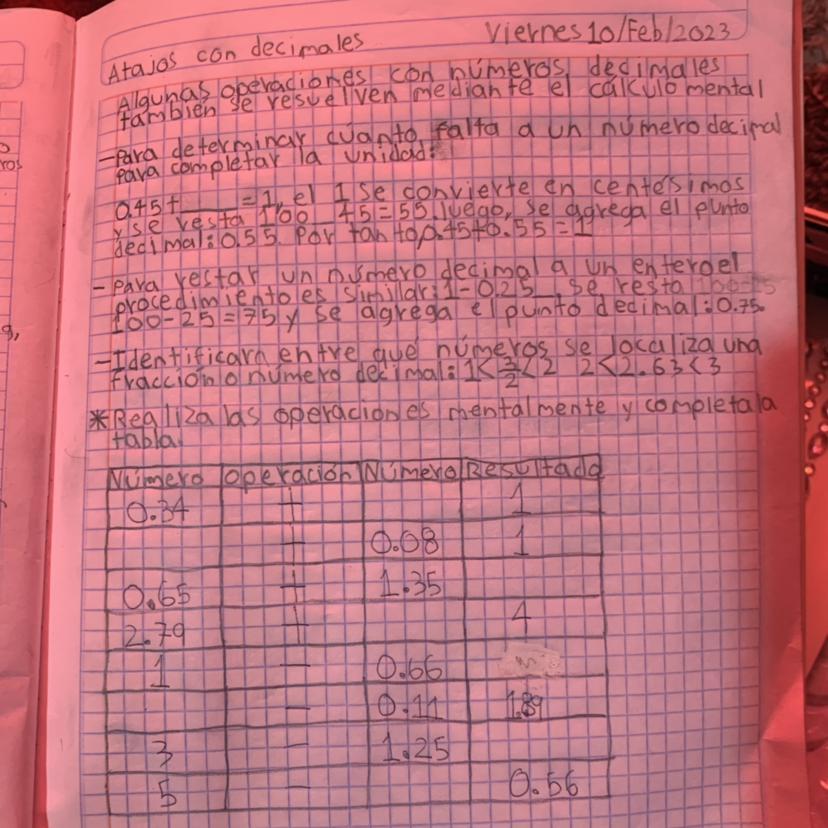 Atajos con decimales
Viernes 10/Feb/2023
Algunas operaciones con números decimales
también se resuelven mediante el cálculo mental
-Para determinar cuanto falta a un número decimal
para completar la unidad:
0.45+____=1, el 1 se convierte en centésimos
y se resta 100_45=55, luego, se agrega el punto
decimal: 0.55. Por tanto, 0.45+0.55=1
-Para restar un número decimal a un entero el
procedimiento es similar: 1-0.25__ se resta
100-25=75 y se agrega el punto decimal: 0.75.
-Identificara entre qué números se localiza una
fracción o número decimal: 1<3/2<2 2<2.63<3
*Realiza las operaciones mentalmente y completa la
tabla.
Número Operación Número Resultado
0.34 + 1
+ 0.08 1
0.65 + 1.35
2.79 + 4
1 - 0.66
- 0.11 1.89
3 - 1.25
5 - 0.56
g,
ros
o